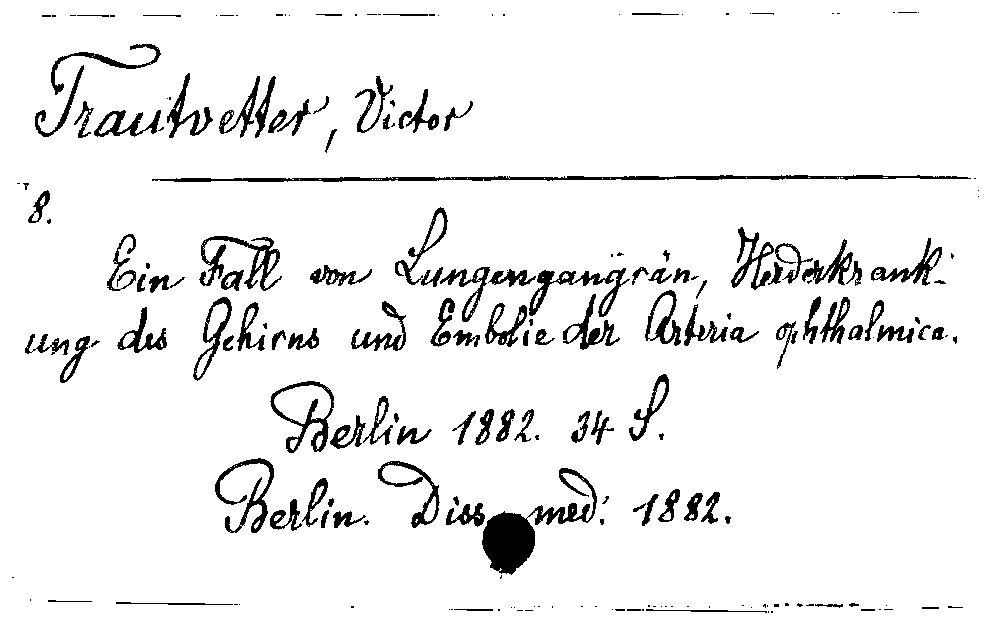 Trautvetter, Victor
8.
Ein Fall von Lungengangrän, Herderkrank-
ung des Gehirns und Embolie der Arteria ophthalmica.
Berlin 1882. 34 S.
Berlin. Diss. med. 1882.